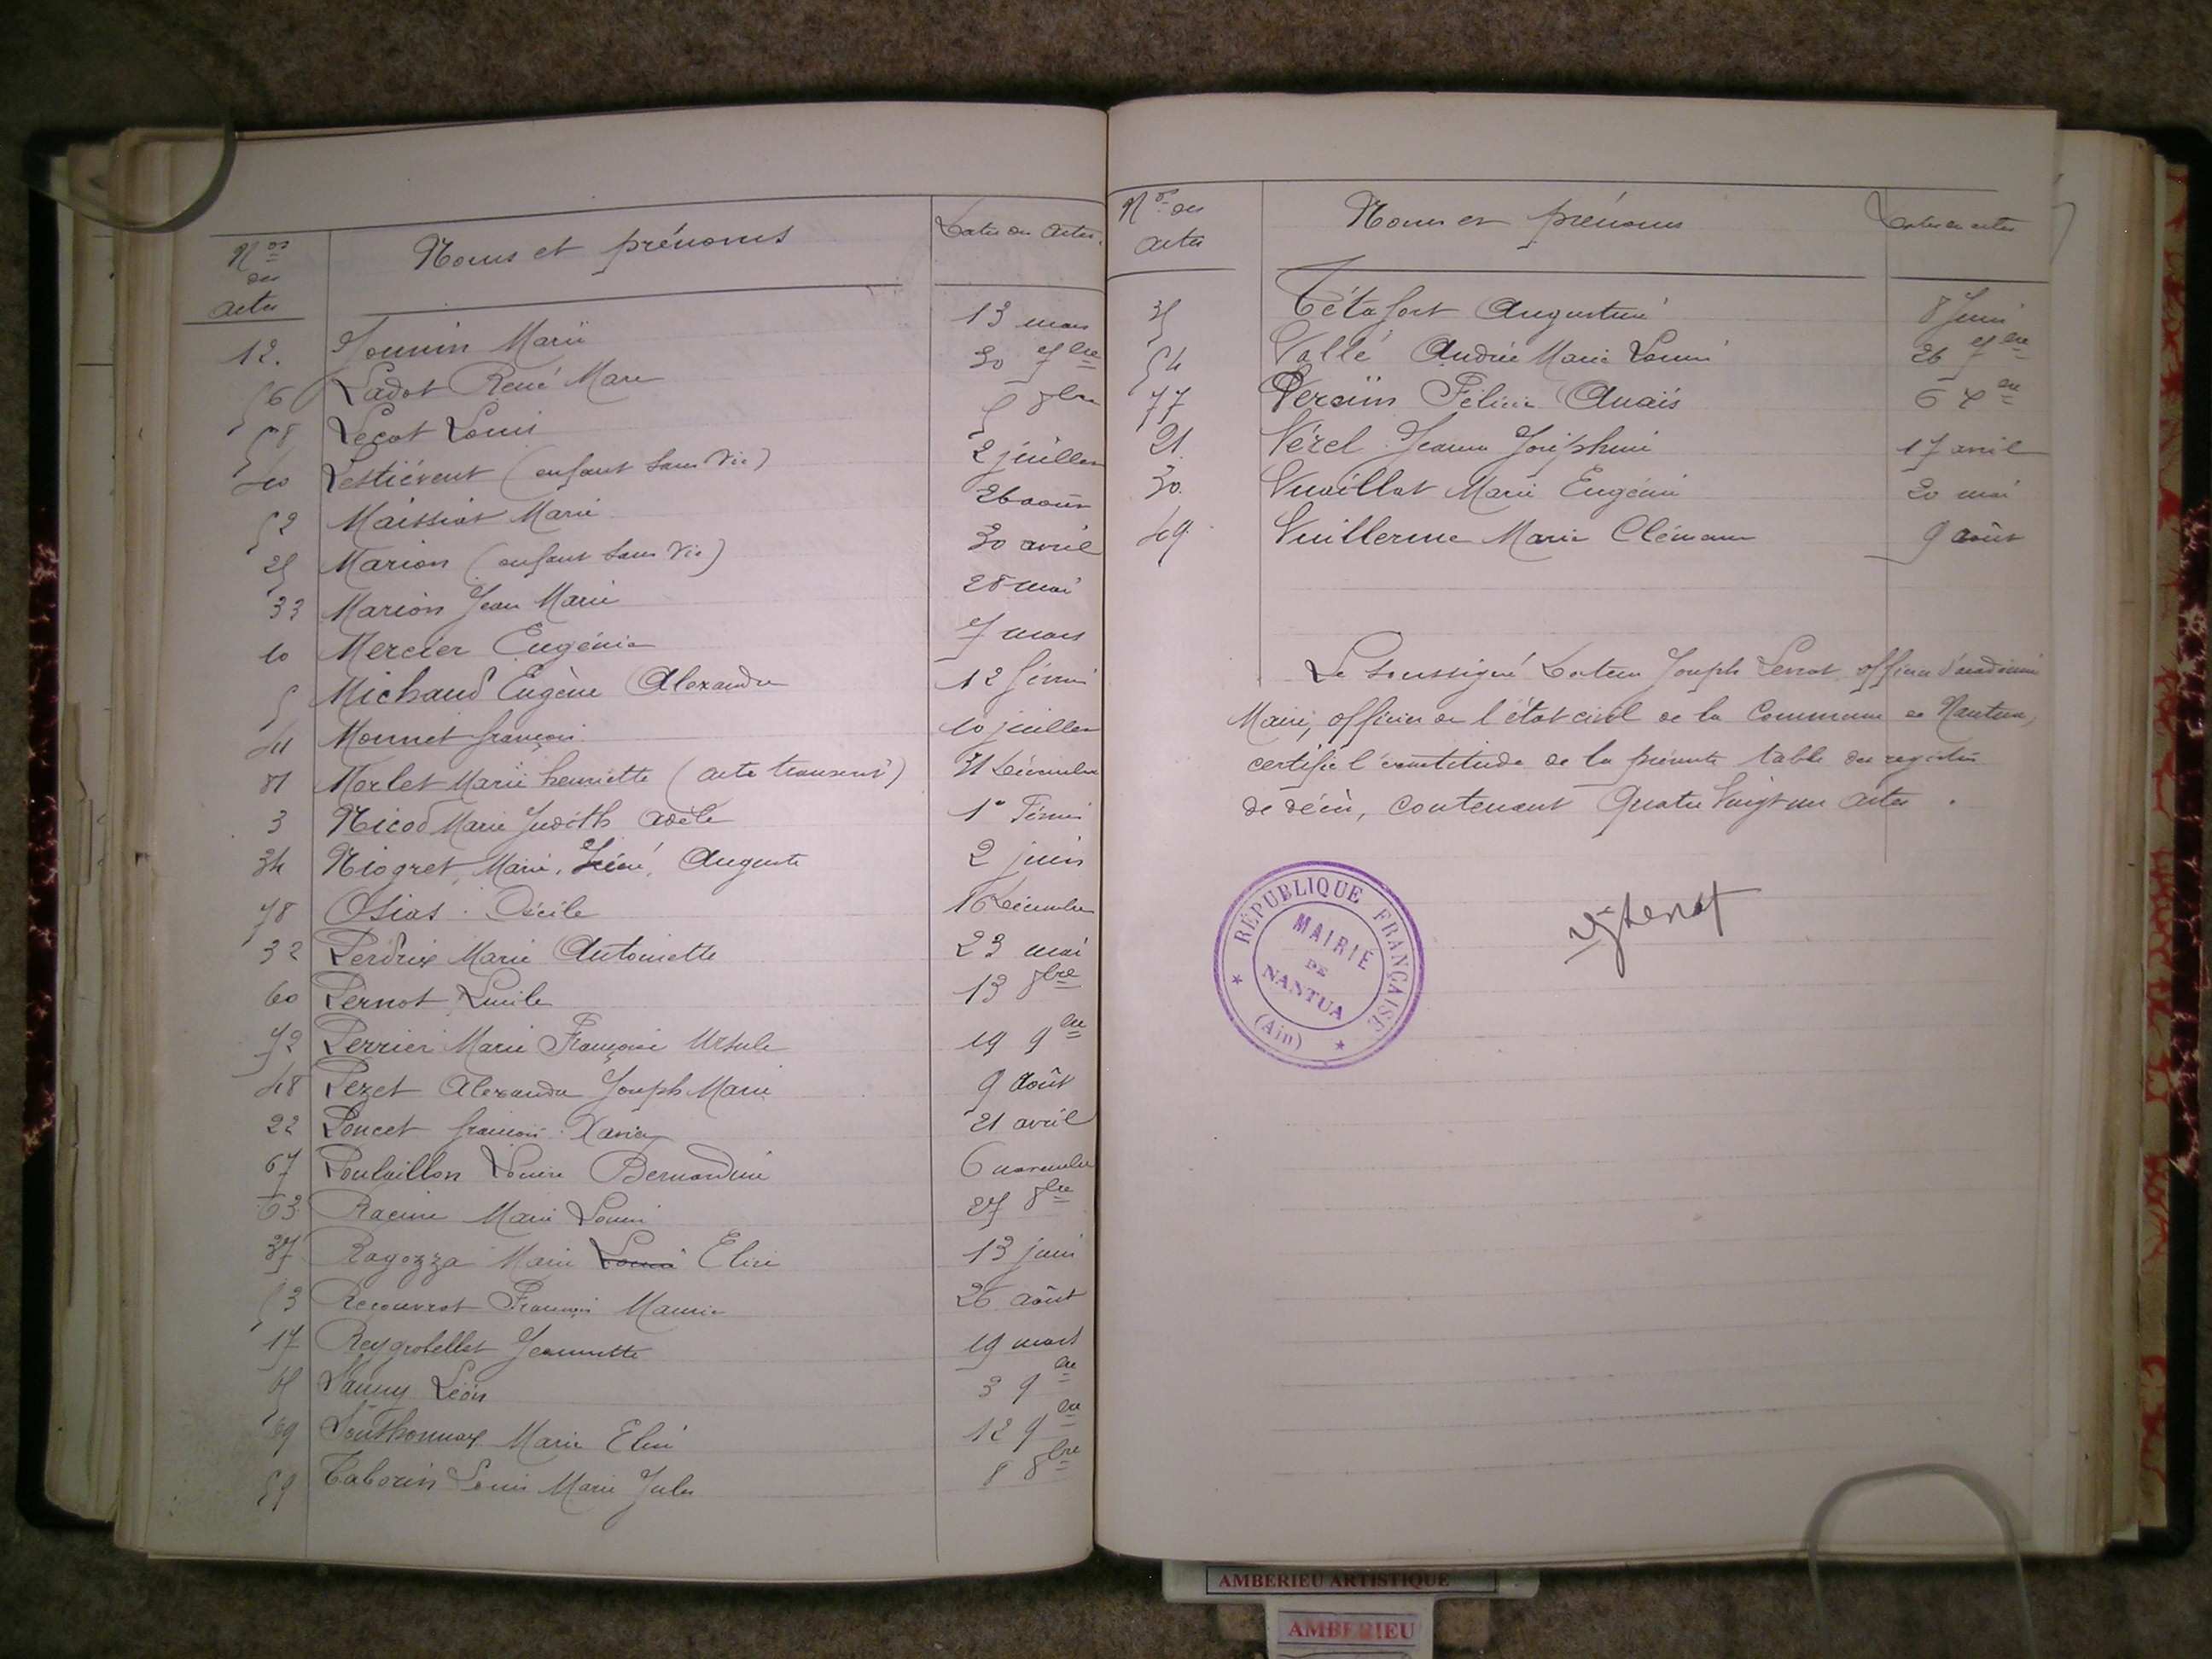 Nos des actes Noms et prénoms Dates des actes
12. Jounin Marie 13 mars
56 Ladot René Marc 30 7bre
58 Lecot Louis 5 8bre
40 Lestiévent (enfant sans vie) 2 juillet
52 Maissiat Marie 26 août
25 Marion (enfant sans vie) 30 avril
33 Marion Jean Marie 28 mai
10 Mercier Eugénie 7 mars
5 Michaud Eugène Alexandre 12 février
41 Monnet françois 10 juillet
81 Morlet Marie henriette (acte transcrit) 31 Décembre
3 Nicod Marie Judith Adèle 1er Février
34 Niogret, Marie, Auguste 2 juin
78 Osias Cécile 16 Décembre
32 Perdrix Marie Antoinette 23 mai
60 Pernot Lucile 13 8bre
72 Perrier Marie Françoise Ursule 19 9bre
48 Pezet Alexandre Joseph Marie 9 Août
22 Poncet françois Xavier 21 avril
67 Poulaillon Louise Bernardine 6 novembre
63 Racine Marie Louise 27 8bre
37 Ragozza Marie Louise Elise 13 juin
53 Recouvrot François Marie 26 août
17 Reygrobellet Jeannette 19 mars
65 Sanny Léon 3 9bre
69 Southonnax Marie Elise 12 9bre
59 Taborin Louis Marie Jules 8 8bre
Nos des actes Noms et prénoms Dates des actes
35 Tétafort Augustine 8 Juin
54 Vallé Andrée Marie Louise 26 7bre
77 Veraïin Félicie Anaïs 6 Xbre
21. Vérel Jeanne Joséphine 17 avril
30. Vuaillat Marie Eugénie 20 mai
49. Vuillerme Marie Clémence 9 août
Le soussigné Docteur Joseph Tenot, officier d'académie
Maire, officier de l'état civil de la Commune de Nantua,
certifie l'exactitude de la présente table du registre
de décès, contenant Quatre Vingt un actes.
RÉPUBLIQUE FRANÇAISE
MAIRIE
DE
NANTUA
(Ain)
AMBERIEU ARTISTIQUE
AMBERIEU